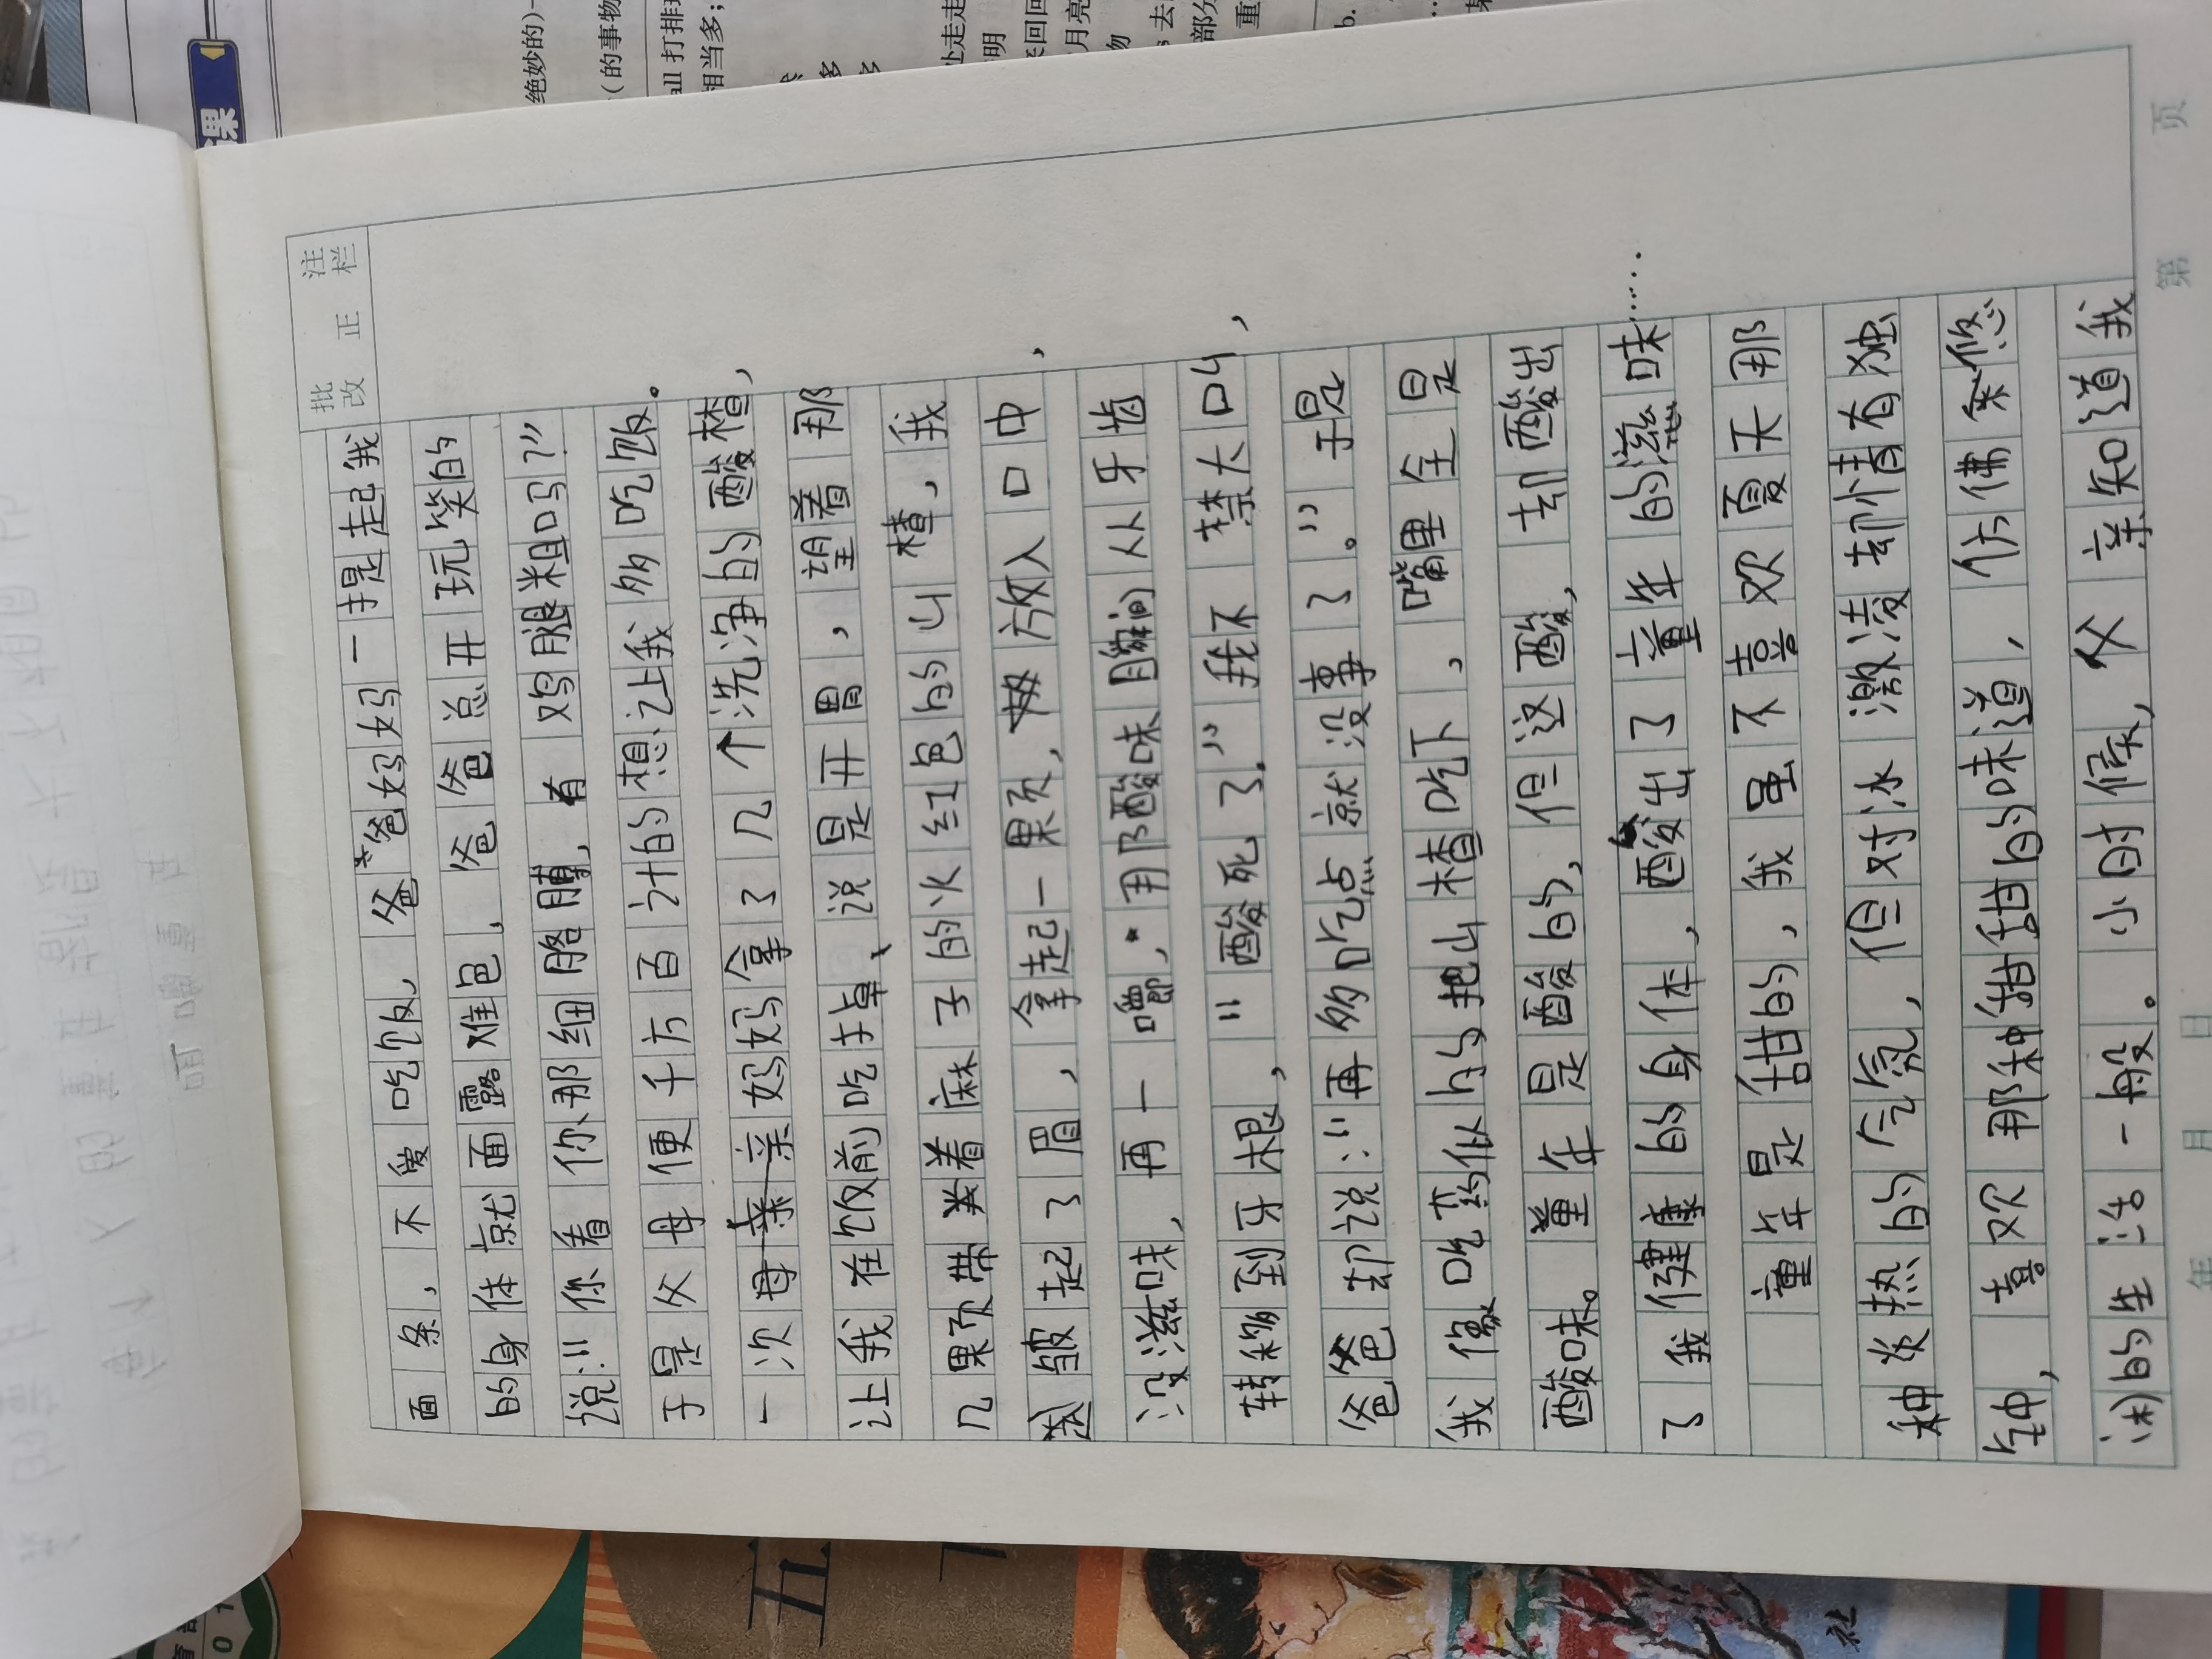 批改 正 注栏
面条，不爱吃饭，爸爸妈妈一提起我
的身体就面露难色，爸爸总开玩笑的
说:"你看你那细胳膊，有鸡腿粗吗?"
于是父母便千方百计的想让我多吃饭。
一次母亲妈妈拿了几个洗净的酸楂，
让我在饭前吃掉、说是开胃，望着那
几颗带着麻子的火红色的山楂，我
皱起了眉，拿起一颗，放入口中，
没滋味，再一嚼，那酸味瞬间从牙齿
转移到牙根，"酸死了。"我不禁大叫，
爸爸却说:"再多吃点就没事了。"于是
我像吃药似的把山楂吃下，嘴里全是
酸味。童年是酸的，但这酸，却酸出
了我健康的身体，酸出了童年的滋味……
童年是甜的，我虽不喜欢夏天那
种炎热的气氛，但对冰激凌却情有独
钟，喜欢那种甜甜的味道，仿佛悠
闲的生活一般。小时候，父亲知道我
年 月 日 第 页
绝妙的)
(的事物
all 打排球
相当多;
处走走
明
来回
月亮
物
s 去
部分
重
果
社